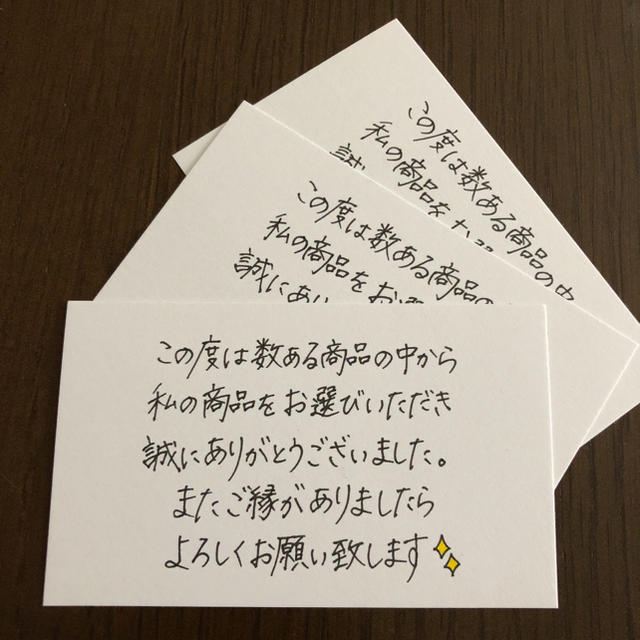 この度は数ある商品の中
私の商品を
誠
この度は数ある商品の
私の商品をお選
誠にあり
この度は数ある商品の中から
私の商品をお選びいただき
誠にありがとうございました。
またご縁がありましたら
よろしくお願い致します